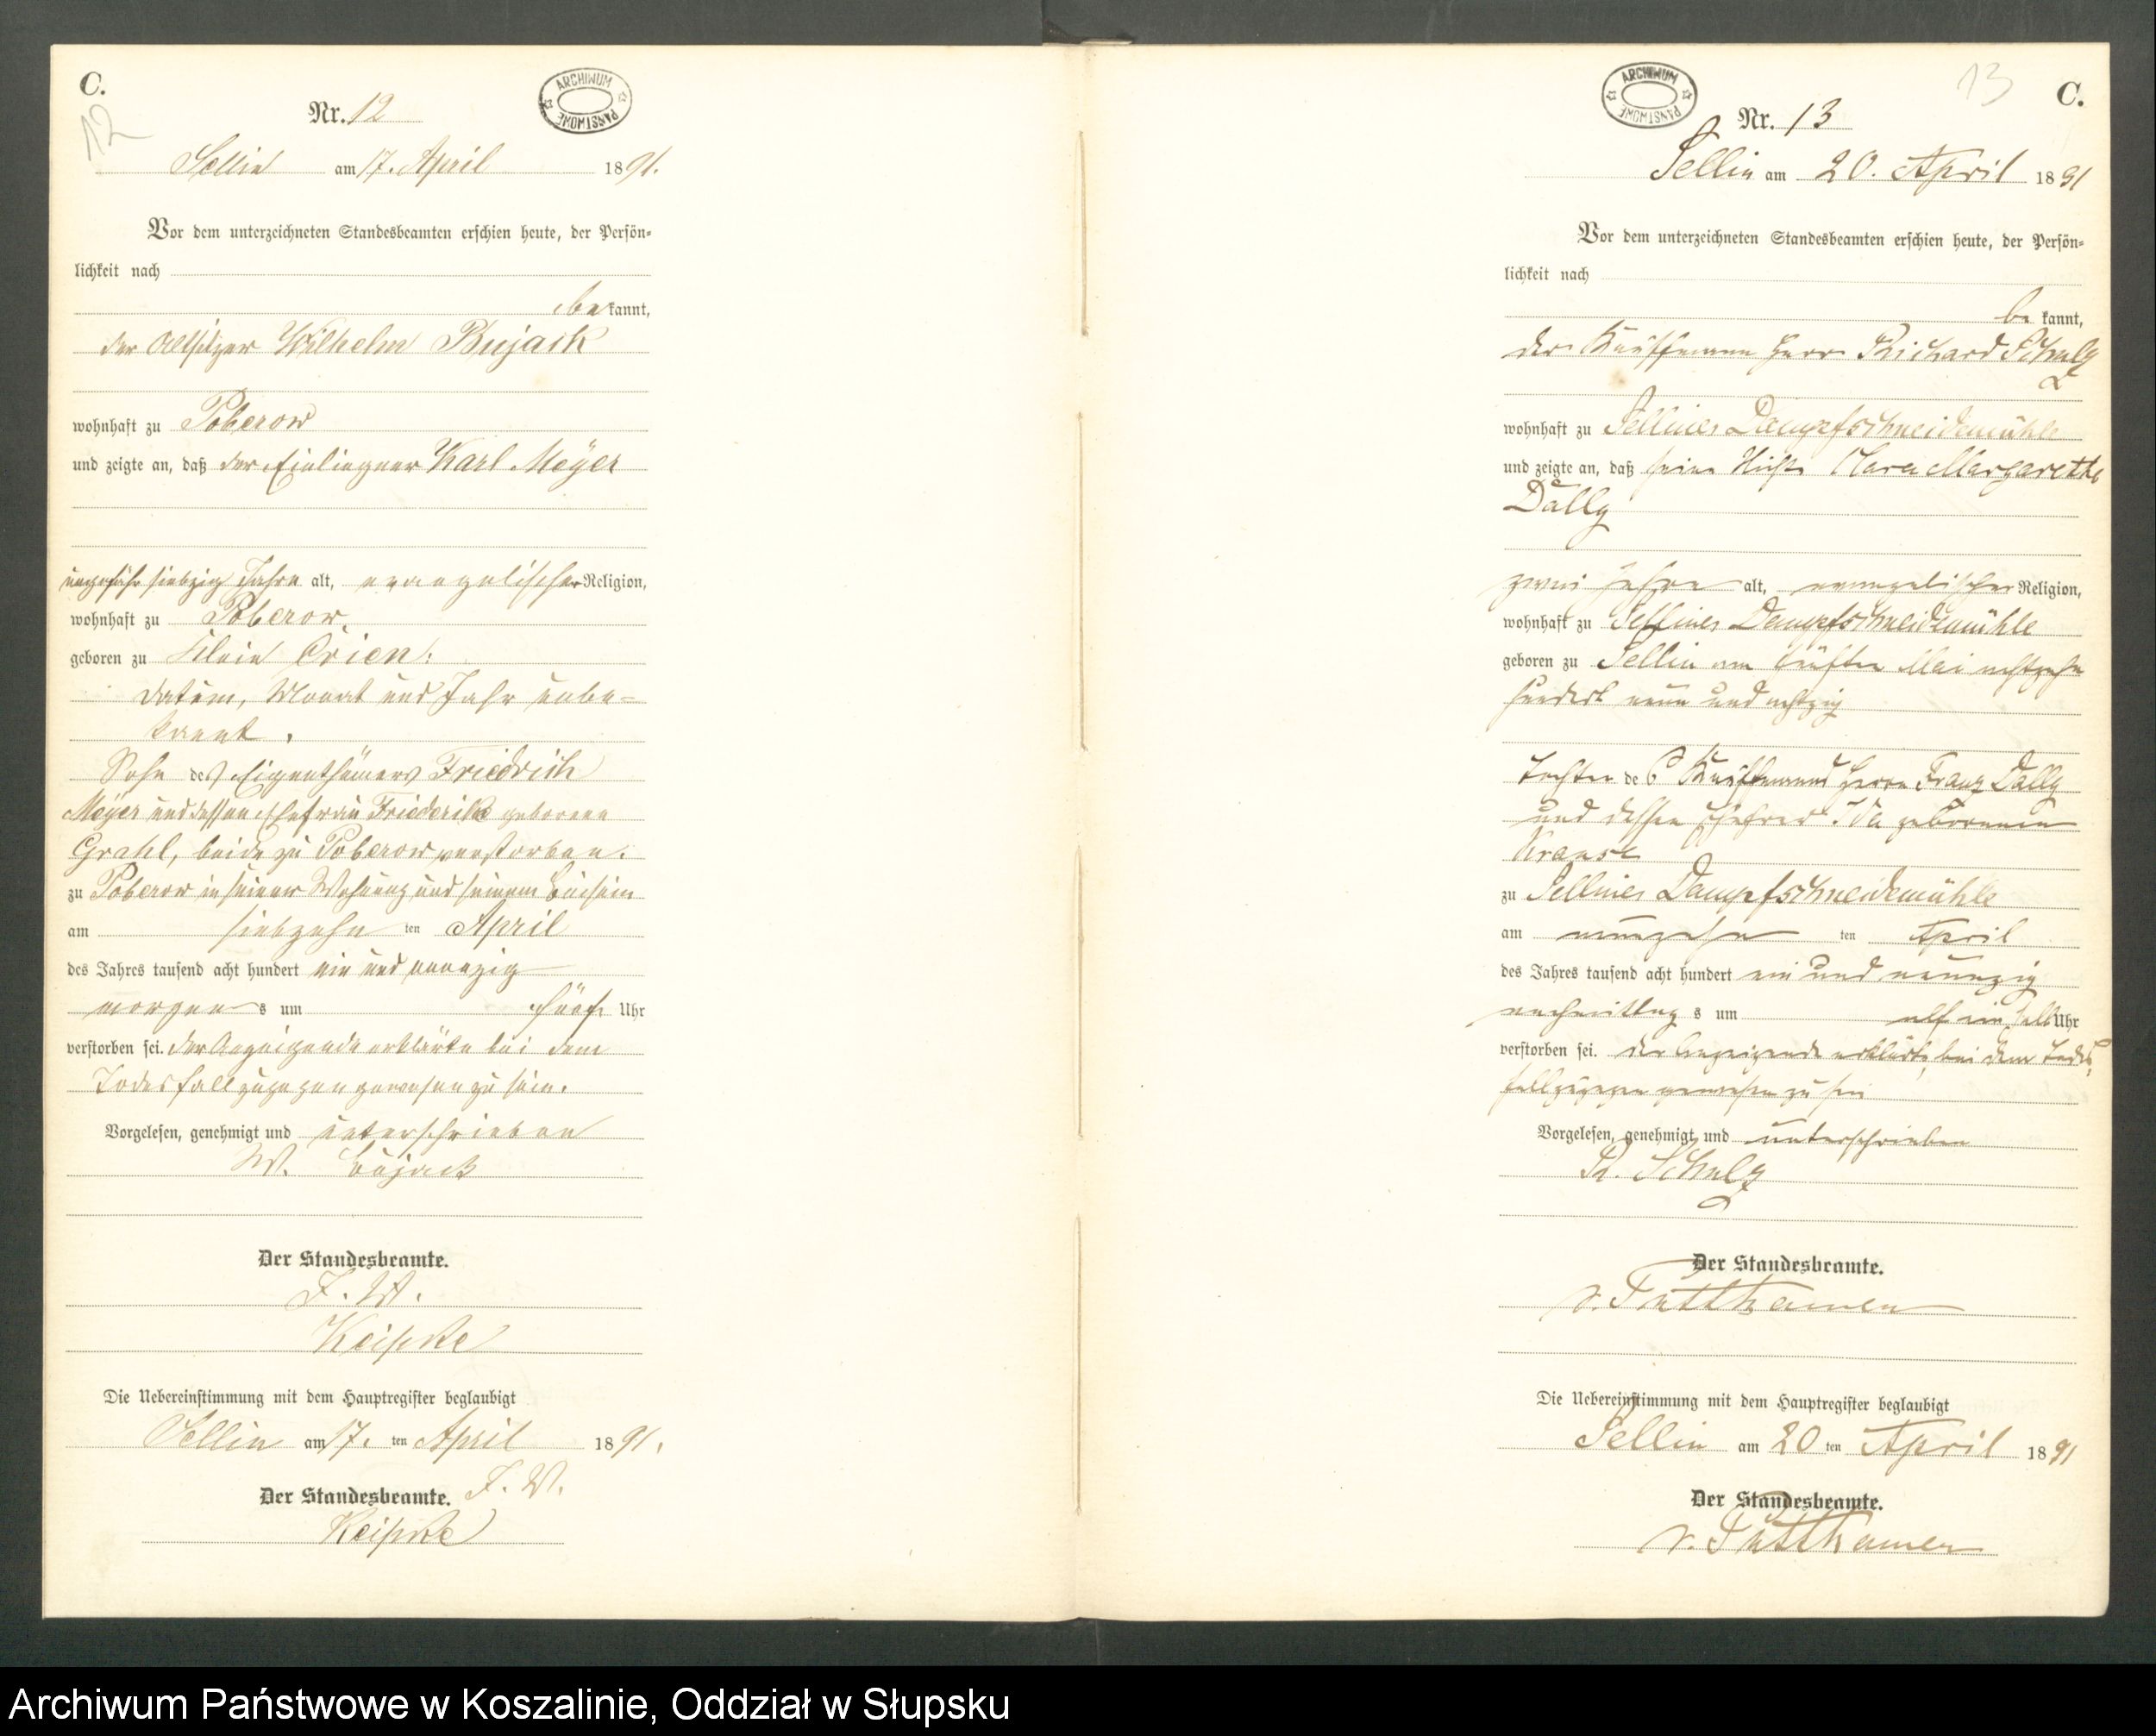 C.
12
Nr. 12
ARCHIWUM PAŃSTWOWE
Sellin am 17. April 1891.
Vor dem unterzeichneten Standesbeamten erschien heute, der Persön-
lichkeit nach
be kannt,
der Altsitzer Wilhelm Bujack
wohnhaft zu Poberow
und zeigte an, daß der Einliegner Karl Meyer
ungefähr siebzig Jahre alt, evangelischer Religion,
wohnhaft zu Poberow.
geboren zu Klein Crien:
Datum, Monat und Jahr unbe-
kannt.
Sohn des Eigenthümers Friedrich
Meyer und dessen Ehefrau Friederike geborene
Grahl, beide zu Poberow verstorben.
zu Poberow in seiner Wohnung und seinem Beisein
am siebzehn ten April
des Jahres tausend acht hundert ein und neunzig
morgens um fünf Uhr
verstorben sei. Der Anzeigende erklärte bei dem
Todesfall zugegen gewesen zu sein.
Vorgelesen, genehmigt und unterschrieben
W. Bujack
Der Standesbeamte.
I. V.
Keipke
Die Uebereinstimmung mit dem Hauptregister beglaubigt
Sellin am 17. ten April 1891.
Der Standesbeamte. I. V.
Keipke
13
C.
ARCHIWUM PAŃSTWOWE
Nr. 13
Sellin am 20. April 1891
Vor dem unterzeichneten Standesbeamten erschien heute, der Persön-
lichkeit nach
be kannt,
der Kaufmann Herr Richard Schulz
wohnhaft zu Selliner Dampfschneidemühle
und zeigte an, daß seine Nichte Clara Margarethe
Dally
zwei Jahre alt, evangelischer Religion,
wohnhaft zu Selliner Dampfschneidemühle
geboren zu Sellin am fünften Mai achtzehn
hundert neun und achtzig
Tochter des Kaufmanns Herrn Franz Dally
und dessen Ehefrau Ida geborenen
Krause
zu Selliner Dampfschneidemühle
am neunzehn ten April
des Jahres tausend acht hundert ein und neunzig
nachmittags um elf ein halb Uhr
verstorben sei. Der Anzeigende erklärte, bei dem Todes-
fall zugegen gewesen zu sein
Vorgelesen, genehmigt und unterschrieben
R. Schulz
Der Standesbeamte.
v. Puttkamer
Die Uebereinstimmung mit dem Hauptregister beglaubigt
Sellin am 20 ten April 1891
Der Standesbeamte.
v. Puttkamer
Archiwum Państwowe w Koszalinie, Oddział w Słupsku